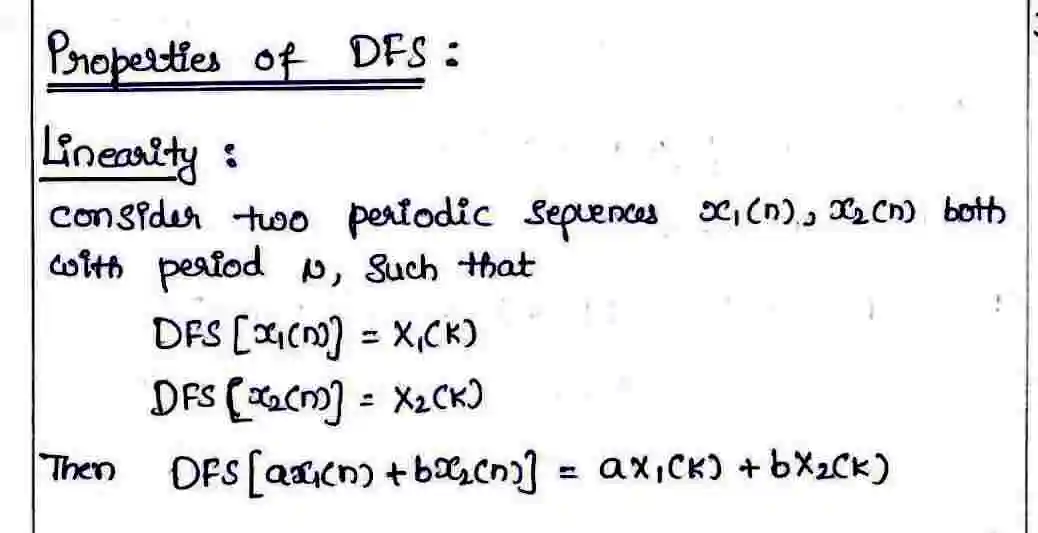 Properties of DFS :
Linearity :
consider two periodic sequences x₁(n), x₂(n) both
with period N, such that
DFS [x₁(n)] = X₁(K)
DFS [x₂(n)] = X₂(K)
Then DFS [ax₁(n) + bx₂(n)] = aX₁(K) + bX₂(K)